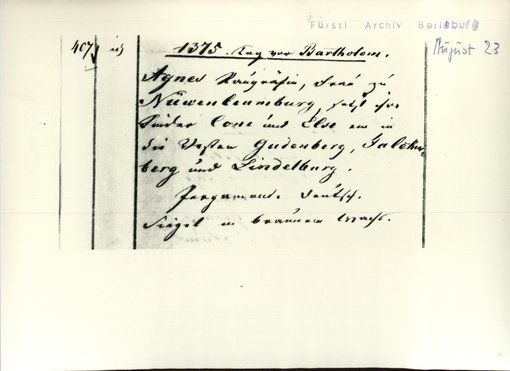 Fürstl. Archiv Berleburg
August 23
407
1375. Tag vor Bartholom.
Agnes Raugräfin, Frau zu
Nuwenbeumburg, setzt ihre
Kinder Cone und Else ein in
die Vesten Gudenberg, Falcken-
berg und Lindelburg.
Pergament. Deutsch.
Siegel in braunem Wachs.